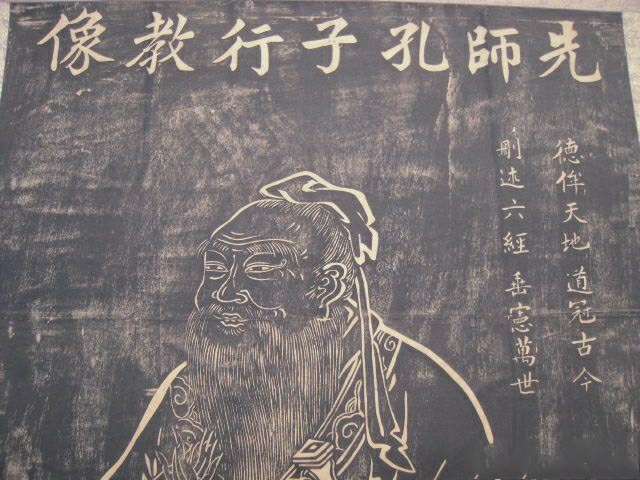 先師孔子行教像
德侔天地 道冠古今
刪述六經 垂憲萬世